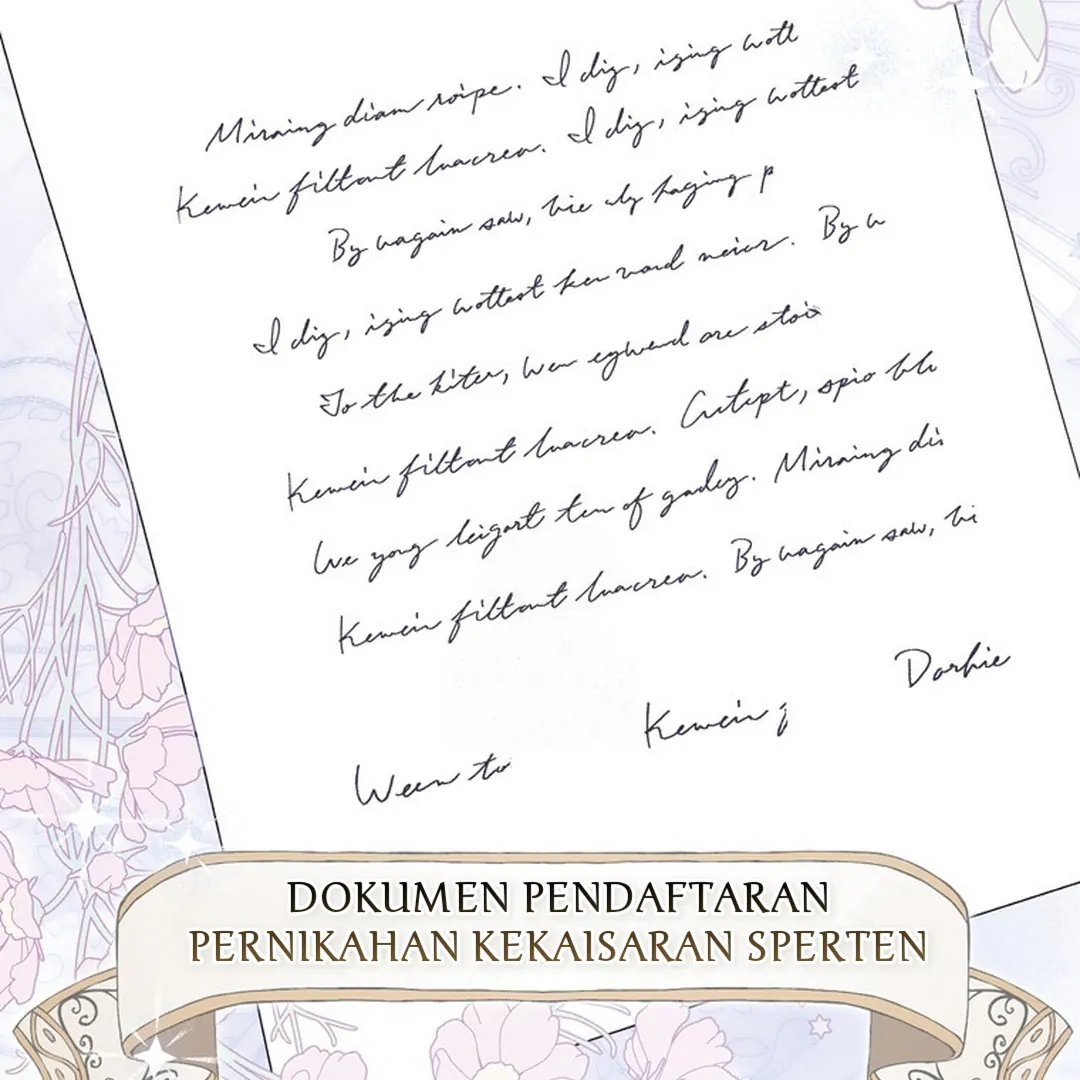 Miraing diam roipe. I dig, iging wott
Kewein filtont luacrea. I dig, iging wottest
By uagain saw, hie uly haging p
I dig, iging wottest ken vard neier. By u
To the kiter, wen egwend are stoix
Kewein filtont luacrea. Cutept, spio bli
We yong leigart ten of gadey. Miraing dis
Kewein filtont luacrea. By uagain saw, hi
Dorhie
Kewein g
Ween to
DOKUMEN PENDAFTARAN
PERNIKAHAN KEKAISARAN SPERTEN